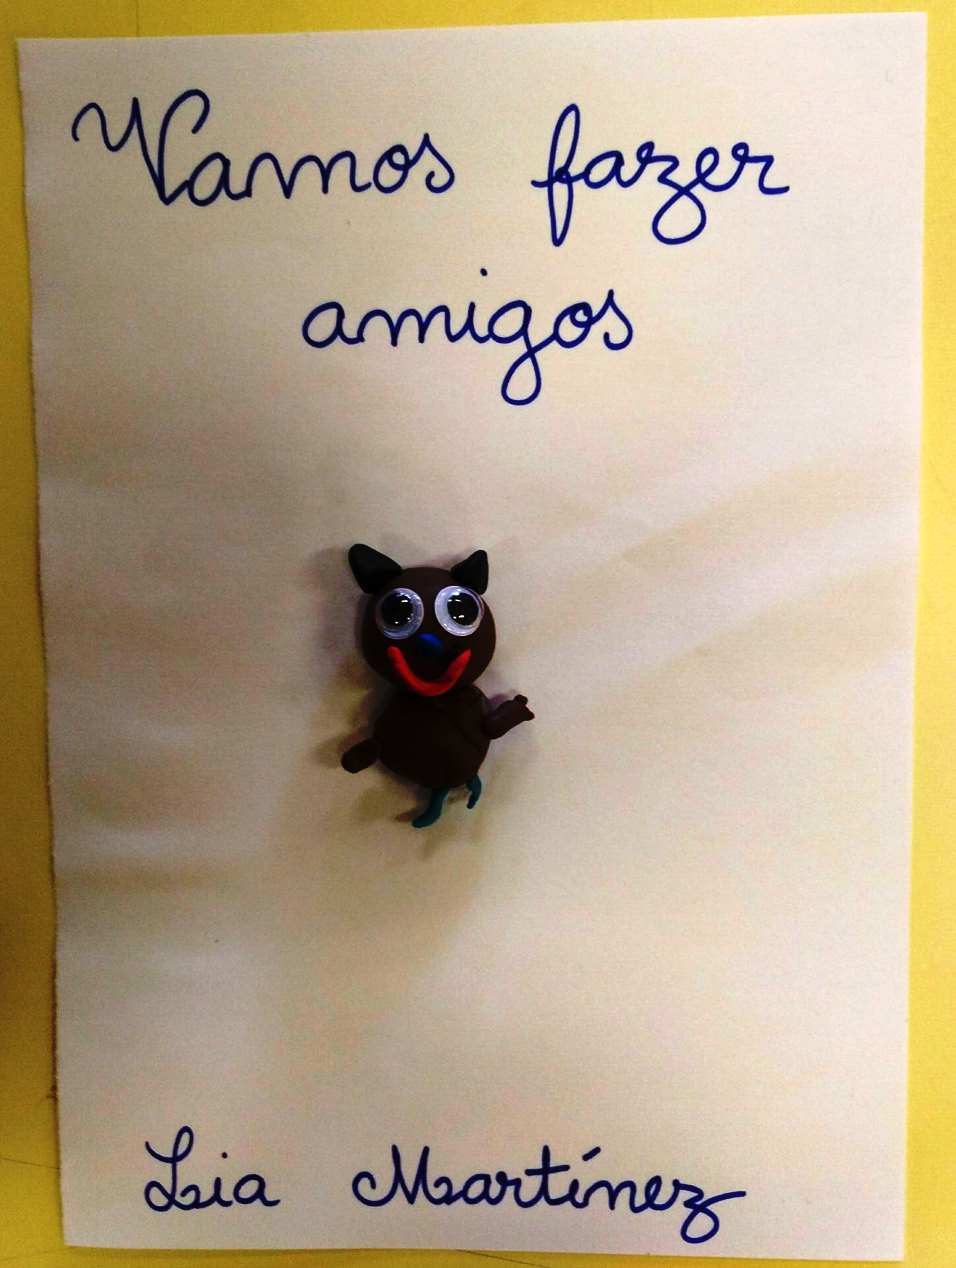 Vamos fazer
amigos
Lia Martínez